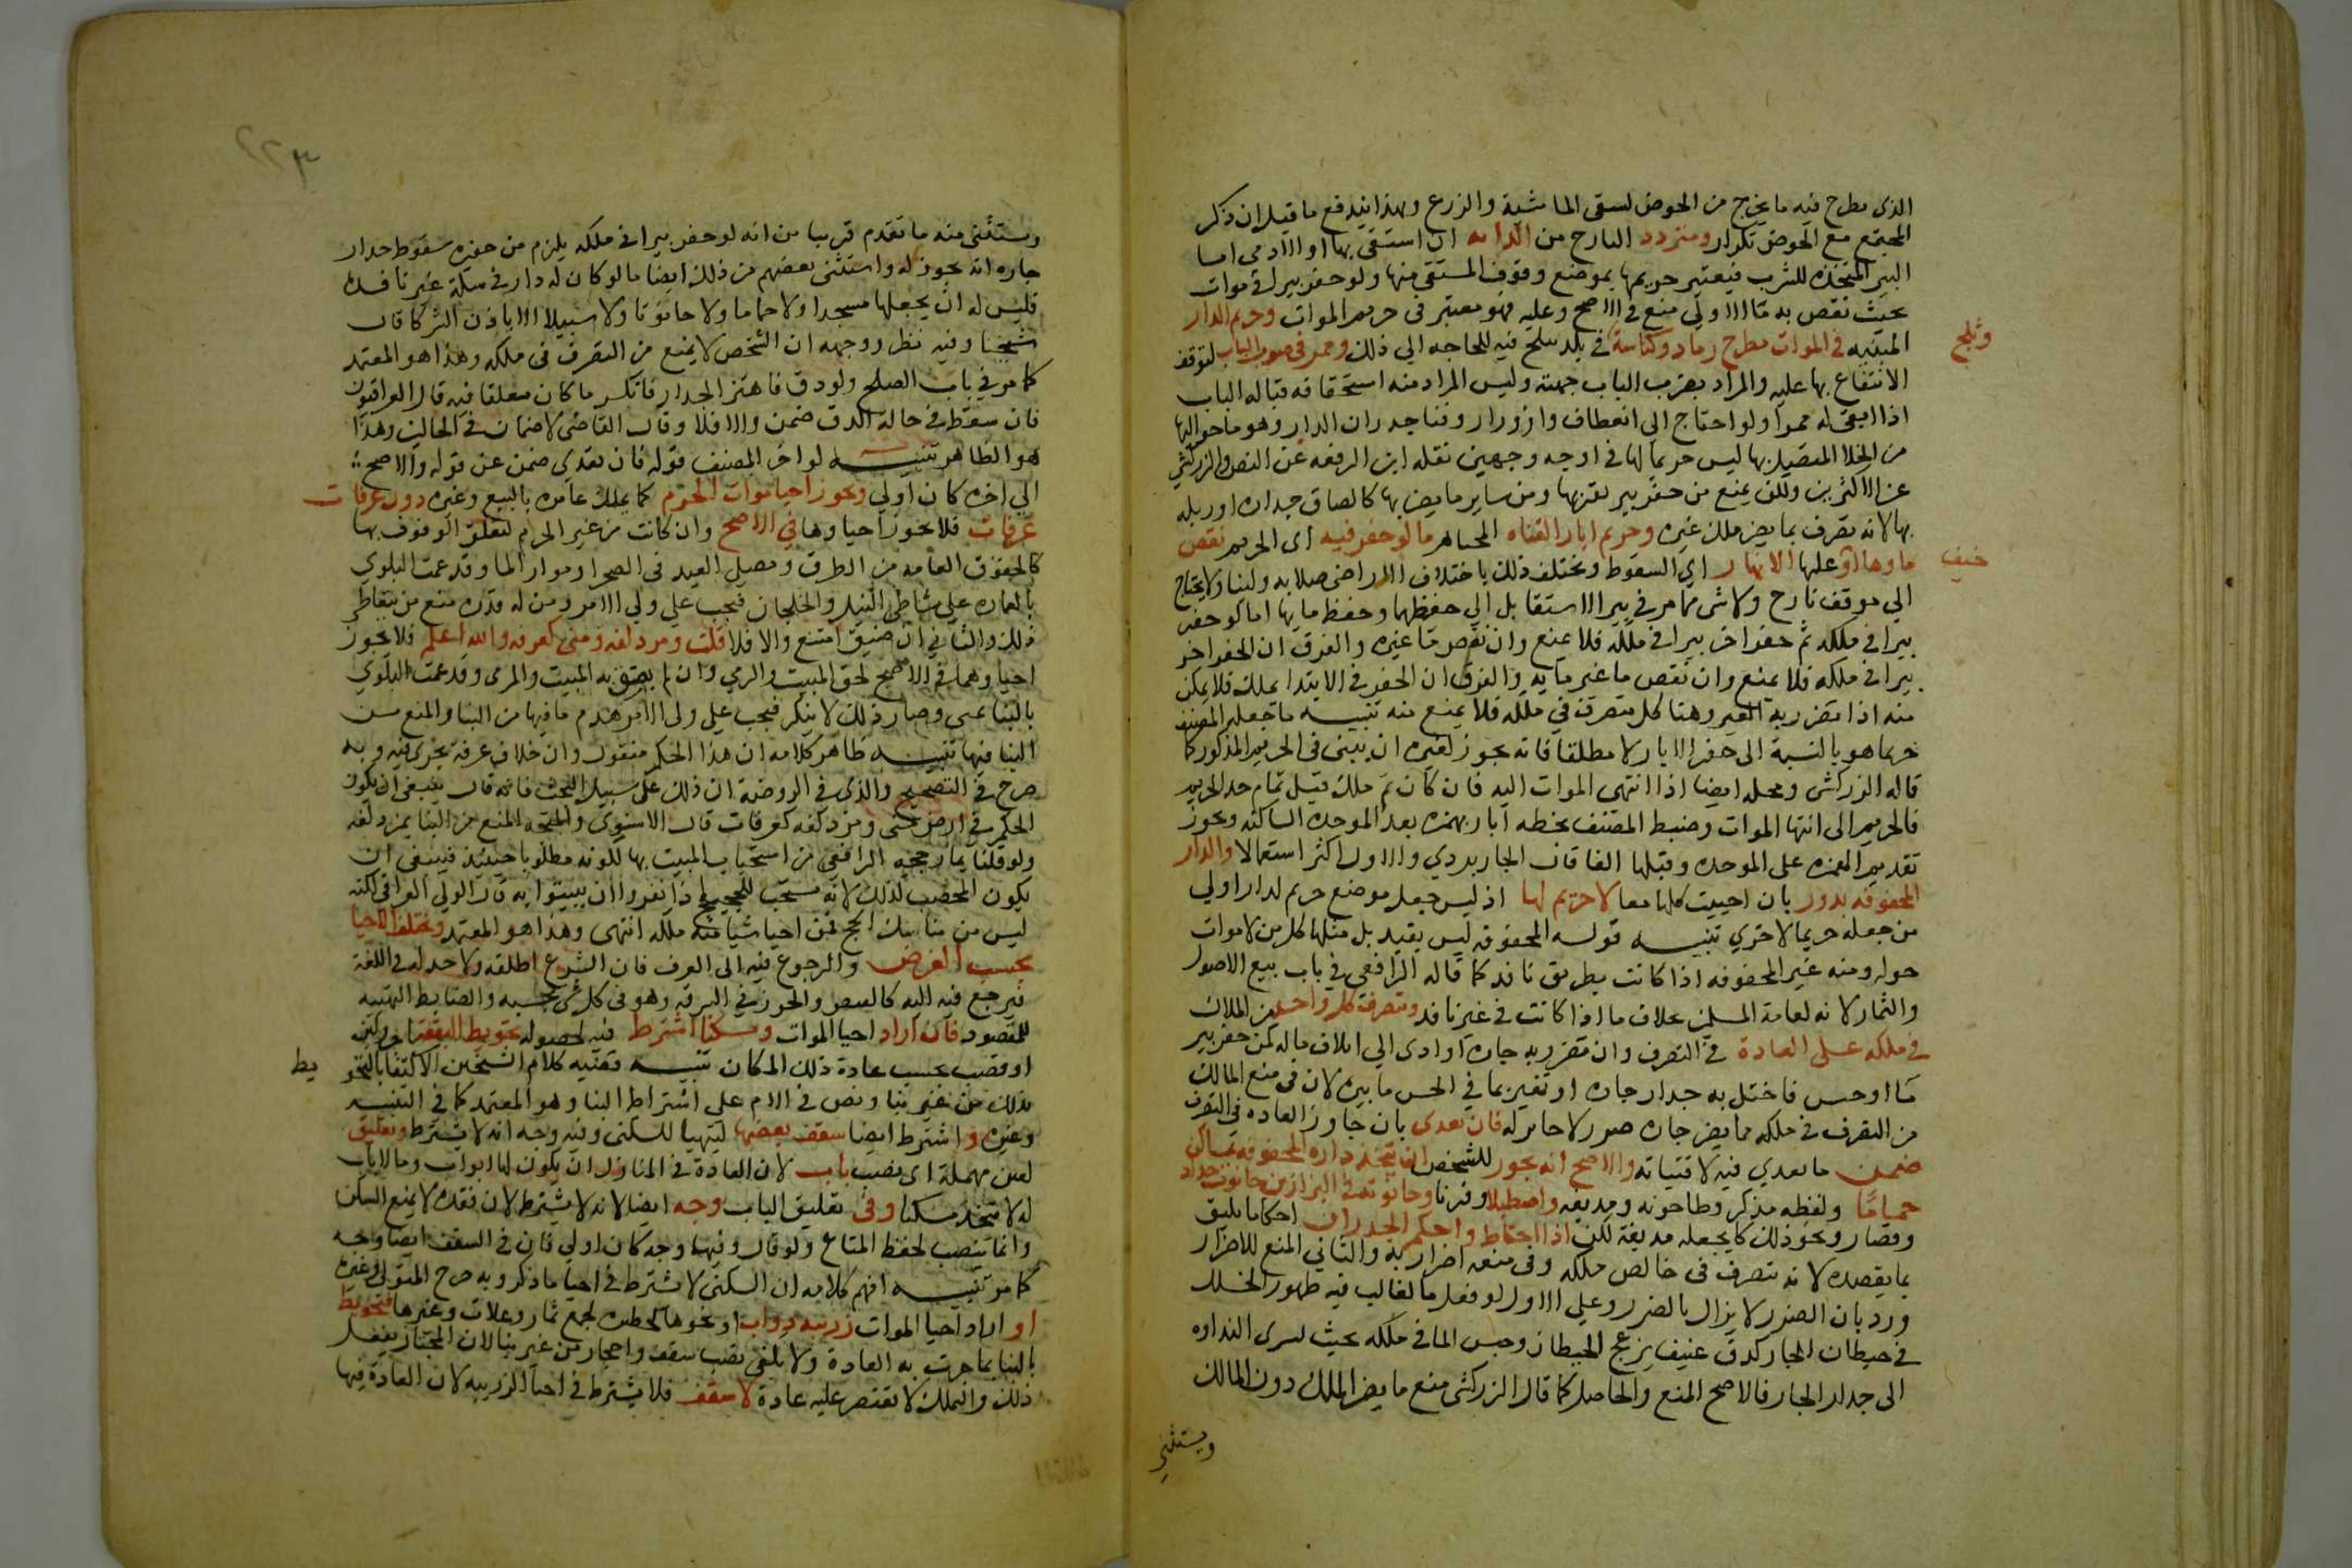 الذى يطرح فيه ما يخرج من الحوض لسقى الماشية والزرع وبهذا يندفع ما قيل ان ذكر
المجتمع مع الحوض تكرار ومتردد النازح من الدابه ان استقى بها او الادمى اما
البير المتخذه للشرب فيعتبر حريمها بموضع وقوف المستقى منها ولو حفر بيرا فى موات
بحيث نقص به ما الاولى منع فى الاصح وعليه فهو معتبر فى حريم الموات وحريم الدار
المبنيه فى الموات مطرح رماد وكناسة فى بلد يثلج فيه للحاجه الي ذلك وممر فى صوب الباب لتوقف
وثلج
الانتفاع بها عليه والمراد بصوب الباب جهته وليس المراد منه استحقاقه قباله الباب
اذا ابقى له ممرا ولو احتاج الى انعطاف وازورار وفنا جدران الدار وهو ما حواليها
من الخلا المتصل بها ليس حريما لها فى اوجه وجهين نقله ابن الرفعه عن النص والزركشي
عن الاكثرين ولكن يمنع من حفر بير بقربها ومن ساير ما يضر بها كالصاق جداره او زبله
بها لانه تصرف بما يضر ملك غيره وحريم ابار القناه المحياه ما لو حفر فيه اى الحريم نقص
ماوها او عليها الانهار اى السقوط ويختلف ذلك باختلاف الاراضى صلابه ولينا ولا يحتاج
خيف
الي موقف نازح ولا شى مما مر فى بير الاستقا بل الي حفظها وحفظ مايها اما لو حفر
بيرا فى ملكه ثم حفر اخر بيرا فى ملكه فلا يمنع وان نقص ما غيره والفرق ان الحفر اخر
بيرا فى ملكه فلا يمنع وان نقص ما غير مايه والفرق ان الحفر فى الابتدا يملك فلا يمكن
منه اذا تضرر به الغير وهنا كل متصرف في ملكه فلا يمنع منه تنبيه ما جعله المصنف
حريما هو بالنسبة الى حفر الابار لا مطلقا فانه يجوز لغيره ان يبنى فى الحريم المذكور كما
قاله الزركشى ومحله ايضا اذا انتهى الموات اليه فان كان ثم ملك قبل تمام حد الحريم
فالحريم الى انتها الموات وضبط المصنف بخطه ابار بهمزه بعد الموحده الساكنه ويجوز
تقديم الهمزه على الموحده وقبلها الفا قال الجاربردي والاول اكثر استعمالا والدار
المحفوفه بدور بان احييت كلها معا لا حريم لها اذ ليس جعل موضع حريم لدار اولى
من جعله حريما لاخري تنبيه قوله المحفوفه ليس بقيد بل مثلها كل من لا موات
حوله ومنه غير المحفوفه اذا كانت بطريق نافذ كما قاله الرافعي في باب بيع الاصول
والثمار لانه لعامة المسلمين بخلاف ما اذا كانت فى غير نافذ ويتصرف كل واحد من الملاك
فى ملكه على العادة فى التصرف وان تضرر به جاره او ادى الى اتلاف ماله كمن حفر بير
ما او حش فاختل به جدار جاره او تغير بما في الحش ما بيره لان فى منع المالك
من التصرف فى ملكه مما يضر جاره ضررا لا جابر له فان تعدى بان جاوز العاده في التصرف
ضمن ما تعدي فيه لافتياته والاصح انه يجوز للشخص ان يتخذ داره المحفوفه بمساكن
حماما ولفظه مذكر وطاحونه ومدبغه واصطبلا وفرنا وحانوته فى البزازين حانوت حداد
وقصار ونحو ذلك كان يجعله مدبغة لكن اذا احتاط واحكم الجدران احكاما يليق
بما يقصده لانه تصرف فى خالص ملكه وفى منعه اضرار به والثاني المنع للاضرار
ورد بان الضرر لا يزال بالضرر وعلى الاول لو فعل ما الغالب فيه ظهور الخلل
فى حيطان الجار كدق عنيف يزعج الحيطان وحبس الما في ملكه بحيث تسرى النداوه
الى جدار الجار فالاصح المنع والحاصل كما قال الزركشى منع ما يضر الملك دون المالك
ويستثنى
٢٢٣
ويستثنى منه ما تقدم قريبا من انه لو حفر بيرا فى ملكه يلزم من حفره سقوط جدار
جاره انه يجوز له واستثنى بعضهم من ذلك ايضا ما لو كان له دار فى سكة غير نافذة
فليس له ان يجعلها مسجدا ولا حماما ولا حانوتا ولا سبيلا الا باذن الشركا قال
شيخنا وفيه نظر ووجهه ان الشخص لا يمنع من التصرف فى ملكه وهذا هو المعتمد
كما مر في باب الصلح ولو دق فاهتز الجدار فانكسر ما كان معلقا فيه قال العراقيون
فان سقط فى حالة الدق ضمن والا فلا وقال القاضى لا ضمان فى الحالين وهذا
هو الظاهر تنبيه لو اخر المصنف قوله فان تعدي ضمن عن قوله والاصح
الي اخره كان اولي ويجوز احيا موات الحرم كما يملك عامره بالبيع وغيره دون عرفات
عرفات فلا يجوز احياوها في الاصح وان كانت من غير الحرم لتعلق الوقوف بها
كالحقوق العامه من الطرق ومصلى العيد فى الصحرا وموارد الما وقد عمت البلوي
بالعماره على شاطئ النيل والخلجان فيجب على ولي الامر ومن له قدره منع من يتعاطى
ذلك والثاني ان ضيق امتنع والا فلا قلت ومزدلفه ومنى كعرفه والله اعلم فلا يجوز
احياوهما فى الاصح لحق المبيت والرمي وان لم يضق به المبيت والمرمى وقد عمت البلوي
بالبنا بمنى وصار ذلك لا ينكر فيجب على ولى الامر هدم ما فيها من البنا والمنع من
البنا فيها تنبيه ظاهر كلامه ان هذا الحكم منقول وان خلاف عرفة يجرى فيه وبه
صرح فى التصحيح والذى في الروضة ان ذلك على سبيل البحث فانه قال ينبغى ان يكون
الحكم فى ارض منى ومزدلفه كعرفات قال الاسنوى والمتجه المنع من البنا بمزدلفه
ولو قلنا بما رجحه الرافعى من استحباب المبيت بها لكونه مطلوبا حينيذ فينبغى ان
يكون المحصب كذلك لانه مستحب للحجيج اذا نفروا ان يبيتوا به قال الولي العراقى لكنه
ليس من مناسك الحج فمن احيا شيا منه ملكه انتهى وهذا هو المعتمد ويختلف الاحيا
بحسب الغرض والرجوع فيه الى العرف فان الشرع اطلقه ولا حد له فى اللغة
فيرجع فيه اليه كالقبض والحرز في السرقه وهو فى كل شى بحسبه والضابط التهيئه
للمقصود فان اراد احيا الموات ومسكنا اشترط فيه لحصوله تحويط البقعة باجر او لبن
او قصب بحسب عادة ذلك المكان تنبيه قضيه كلام الشيخين الاكتفا بالتحو
يط
بذلك من غير بنا ونص فى الام على اشتراط البنا وهو المعتمد كما فى التنبيه
وغيره واشترط ايضا سقف بعضها ليتهيا للسكنى وفيه وجه انه لا يشترط وتعليق
بعين مهملة اى نصب باب لان العادة فى المنازل ان يكون لها ابواب وما لا باب
له لا يتخذ مسكنا وفى تعليق الباب وجه ايضا لانه لا يشترط لان فقده لا يمنع السكنى
وانما ينصب لحفظ المتاع ولو قال وفيهما وجه كان اولي فان فى السقف ايضا وجه
كما مر تنبيه افهم كلامه ان السكنى لا تشترط فى احيا ما ذكر وبه صرح المتولى وغيره
او اراد احيا الموات زريبه دواب او نحوها كحظيرة لجمع ثمار وغلات وغيرها فتحويط
بالبنا بما جرت به العادة ولا يكفى نصب سقف واحجار من غير بنا لان المجتاز يفعل
ذلك والتملك لا يقتصر عليه عادة لا سقف فلا يشترط فى احيا الزريبه لان العادة فيها